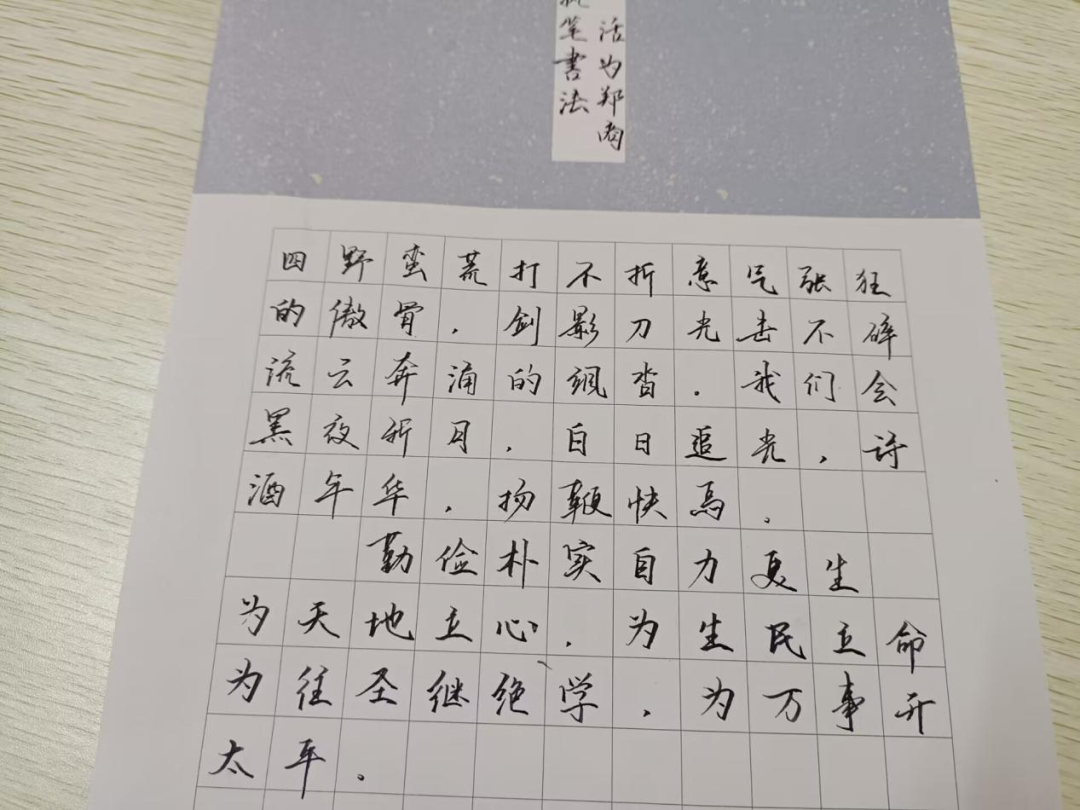 活为郑内
笔书法
四野蛮荒打不折意气张狂
的傲骨,剑影刀光击不碎
流云奔涌的飒沓.我们会
黑夜祈月,白日追光,诗
酒年华,扬鞭快马.
勤俭朴实自力更生
为天地立心,为生民立命
为往圣继绝学,为万事开
太平。